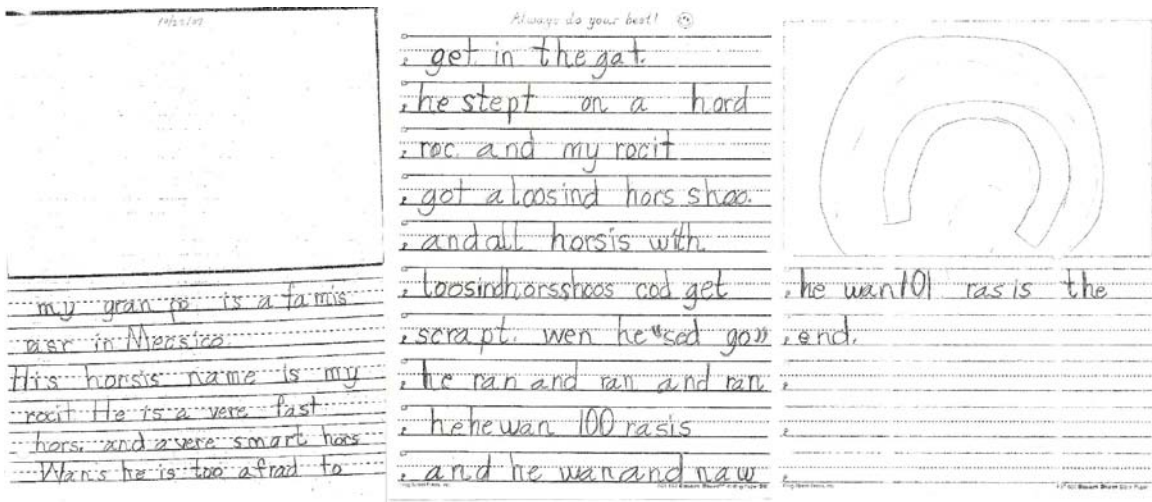 my gran po is a famis
in Mecsico.
His horsis name is my
rocit He is a vere fast
hors. and a vere smart hors
Wans he is too afrad to
Always do your best!
get in the gat.
he stept on a hord
roc. and my rocit
got a loosind hors shoo.
and all horsis with
loosind horsshoos cod get
scrapt. wen he "sed go"
he ran and ran and ran
he he wan 100 rasis
and he wan and naw
he wan 101 rasis the
end.